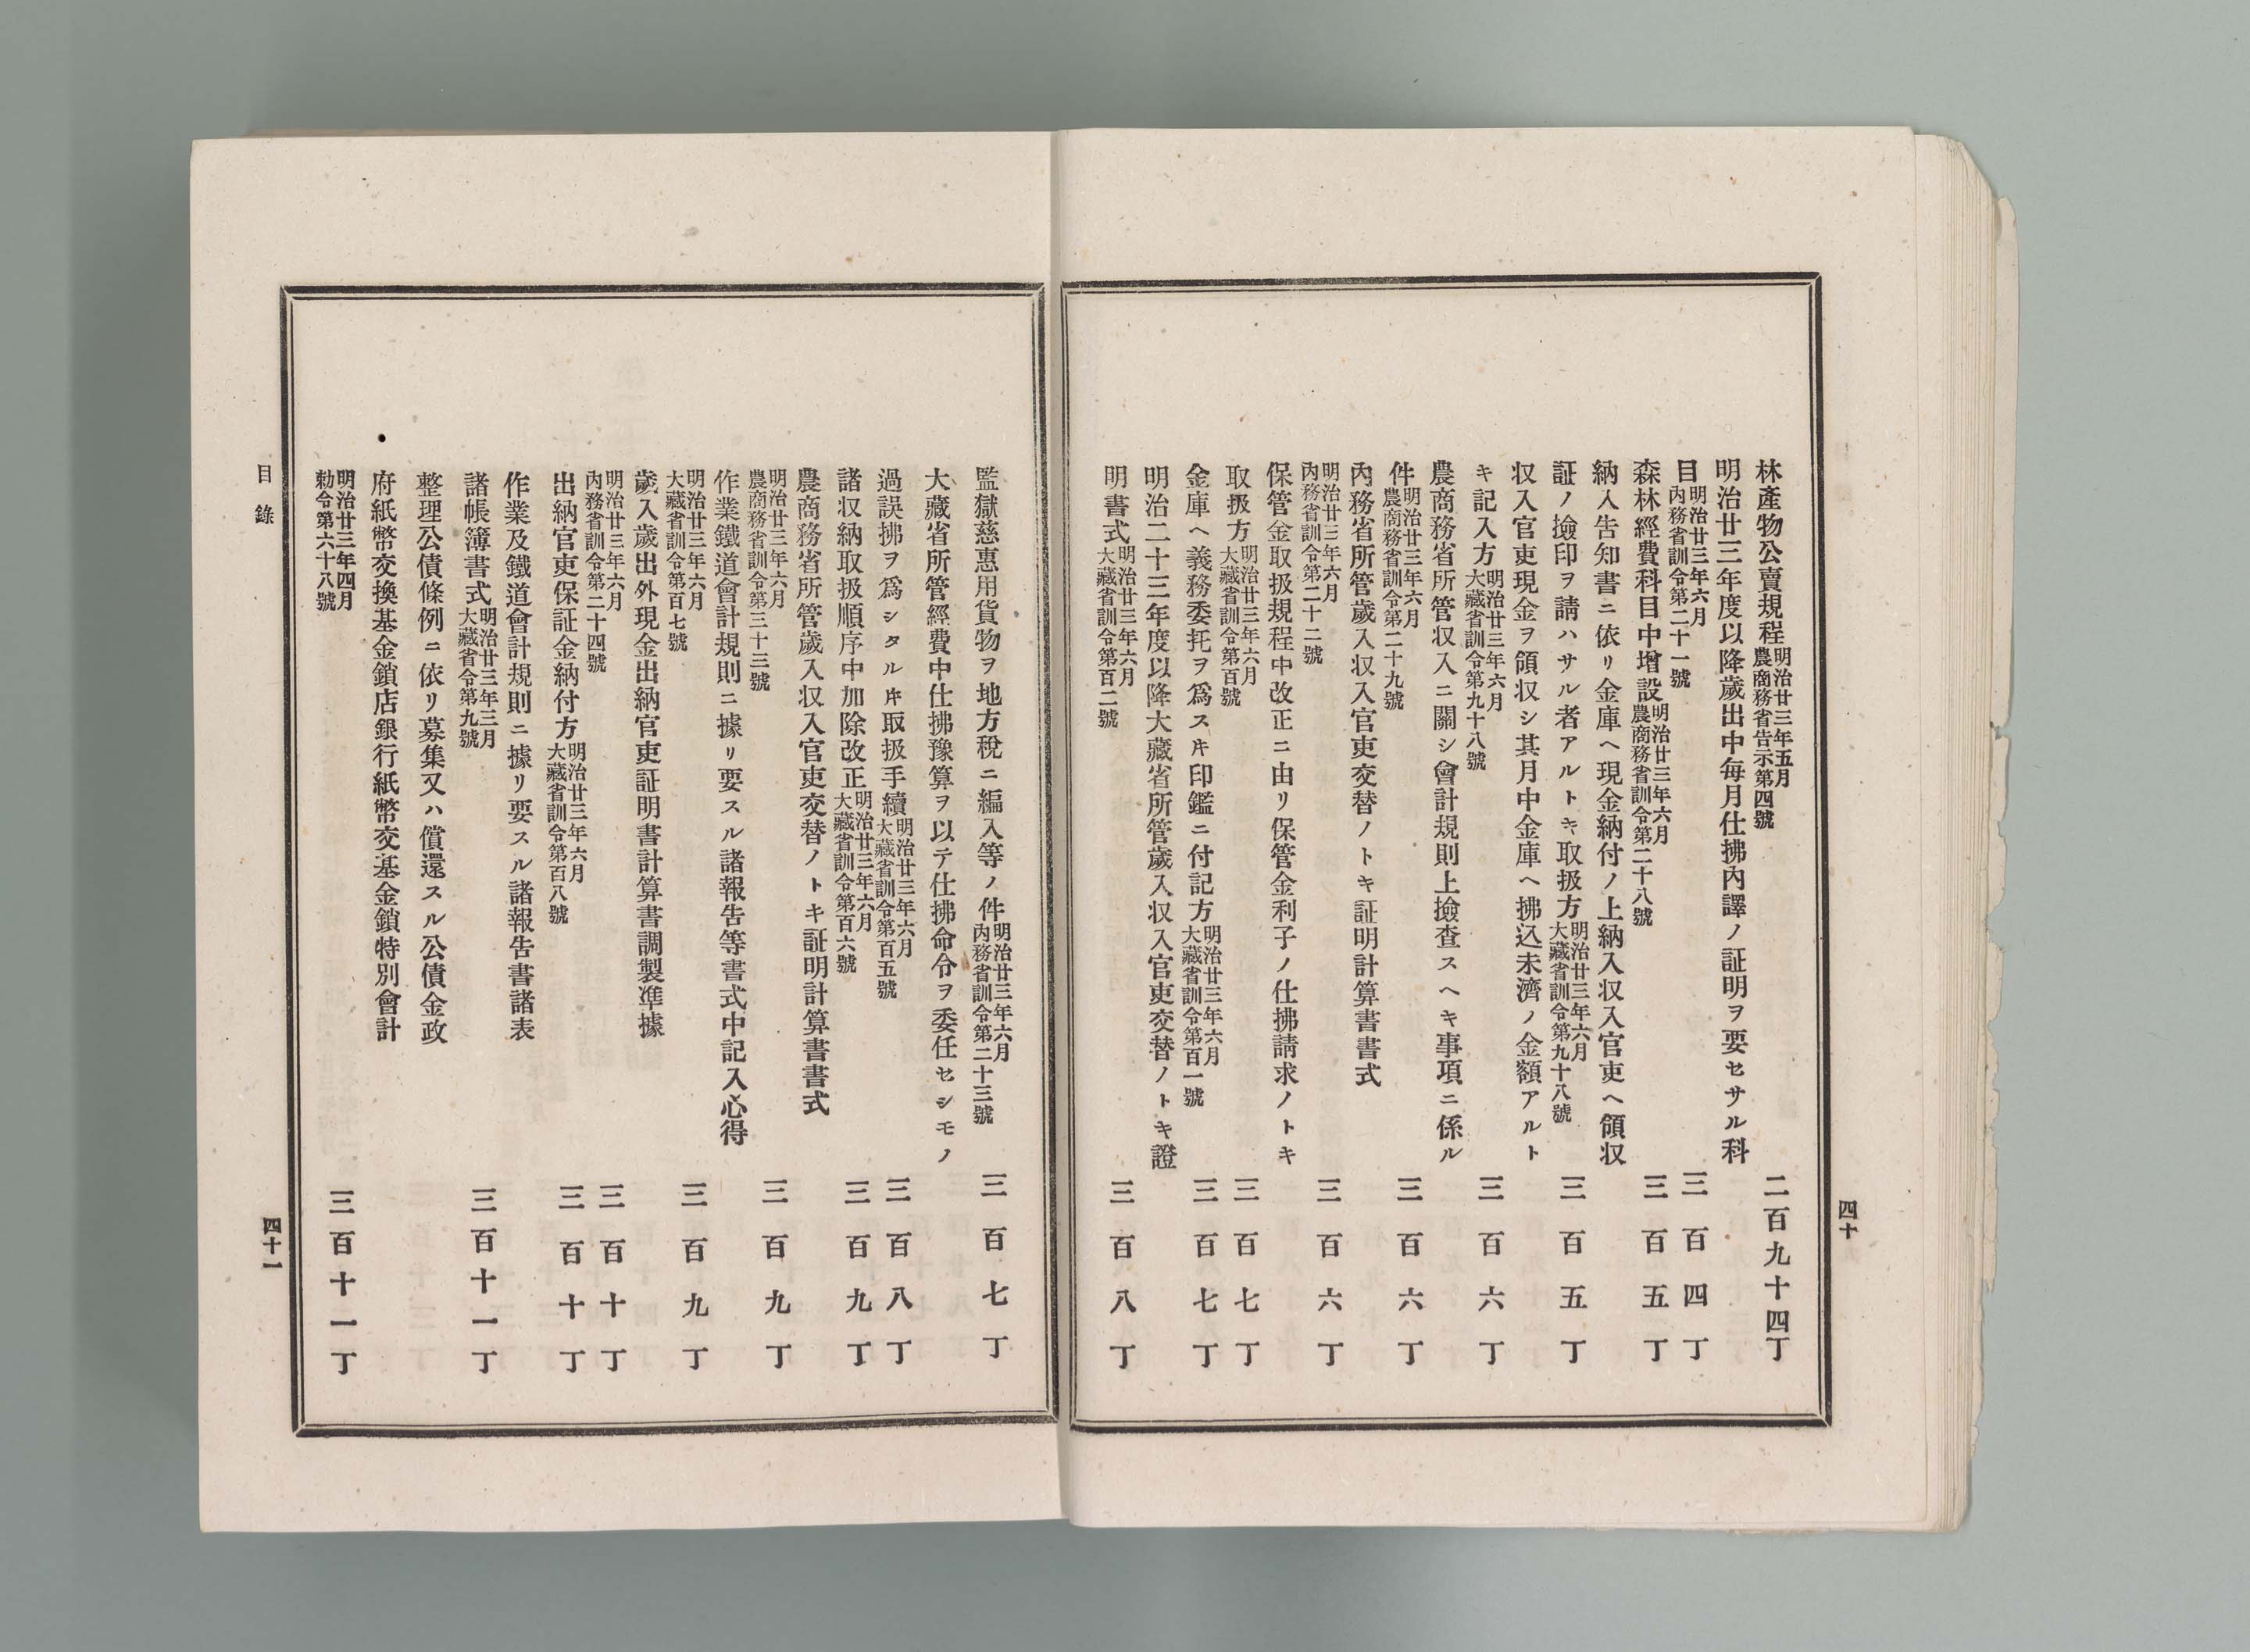 四十
林產物公賣規程明治廿三年五月農商務省吿示第四號 二百九十四丁
明治廿三年度以降歲出中每月仕拂內譯ノ証明ヲ要セサル科
目明治廿三年六月內務省訓令第二十一號 三百四丁
森林經費科目中增設明治廿三年六月農商務省訓令第二十八號 三百五丁
納人吿知書ニ依リ金庫ヘ現金納付ノ上納入収入官吏ヘ領収
証ノ撿印ヲ請ハサル者アルトキ取扱方明治廿三年六月大藏省訓令第九十八號 三百五丁
収入官吏現金ヲ領収シ其月中金庫ヘ拂込未濟ノ金額アルト
キ記入方明治廿三年六月大藏省訓令第九十八號 三百六丁
農商務省所管収入ニ關シ會計規則上撿查スヘキ事項ニ係ル
件明治廿三年六月農商務省訓令第二十九號 三百六丁
內務省所管歲入収入官吏交替ノトキ証明計算書書式
明治廿三年六月內務省訓令第二十二號 三百六丁
保管金取扱規程中改正ニ由リ保管金利子ノ仕拂請求ノトキ
取扱方明治廿三年六月大藏省訓令第百號 三百七丁
金庫ヘ義務委托ヲ爲スヰ印鑑ニ付記方明治廿三年六月大藏省訓令第百一號 三百七丁
明治二十三年度以降大藏省所管歲入収入官吏交替ノトキ證
明書式明治廿三年六月大藏省訓令第百二號 三百八丁
監獄慈惠用貨物ヲ地方稅ニ編入等ノ件明治廿三年六月內務省訓令第二十三號 三百七丁
大藏省所管經費中仕拂豫算ヲ以テ仕拂命令ヲ委任セシモノ
過誤拂ヲ爲シタルヰ取扱手續明治廿三年六月大藏省訓令第百五號 三百八丁
諸収納取扱順序中加除改正明治廿三年六月大藏省訓令第百六號 三百九丁
農商務省所管歲入収入官吏交替ノトキ証明計算書書式
明治廿三年六月農商務省訓令第三十三號 三百九丁
作業鐵道會計規則ニ據リ要スル諸報吿等書式中記入心得
明治廿三年六月大藏省訓令第百七號 三百九丁
歲入歲出外現金出納官吏証明書計算書調製準據
明治廿三年六月內務省訓令第二十四號 三百十丁
出納官吏保証金納付方明治廿三年六月大藏省訓令第百八號 三百十丁
作業及鐵道會計規則ニ據リ要スル諸報吿書諸表
諸帳簿書式明治廿三年三月大藏省令第九號 三百十一丁
整理公債條例ニ依リ募集又ハ償還スル公債金政
府紙幣交換基金鎖店銀行紙幣交基金鎖特別會計
明治廿三年四月勅令第六十八號 三百十一丁
目錄
四十一